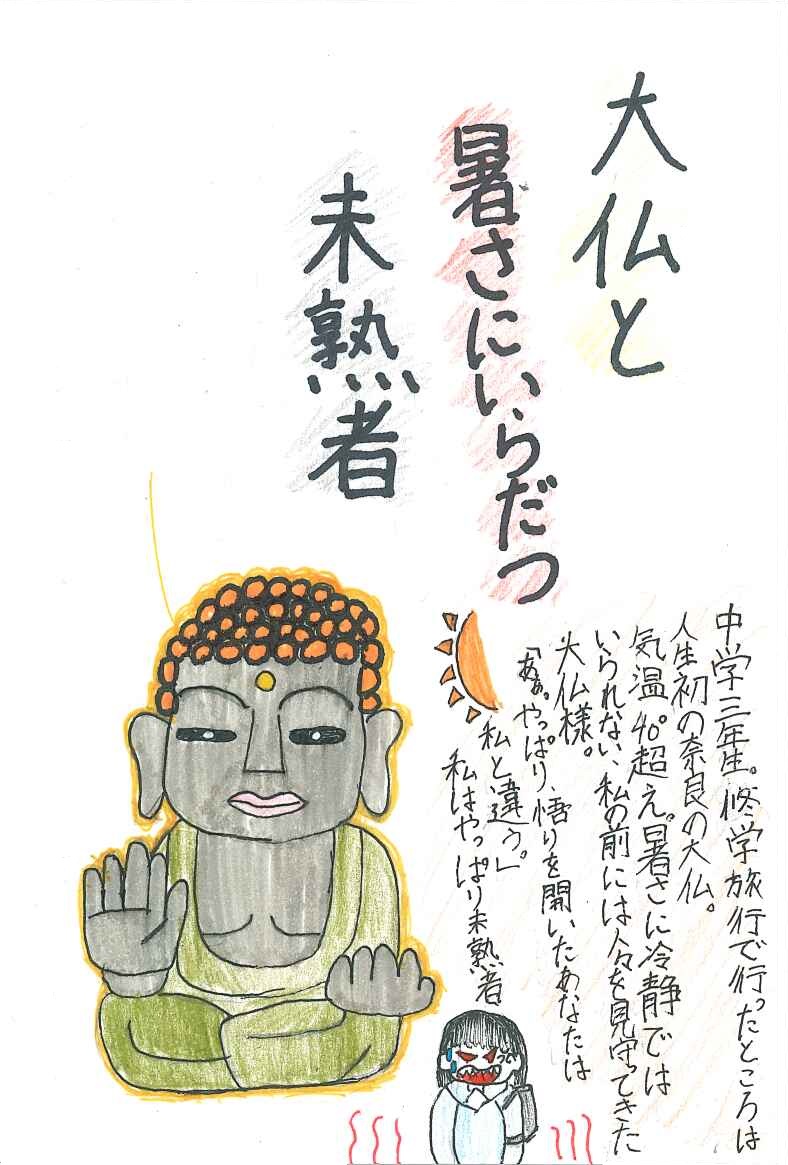 大仏と
暑さにいらだつ
未熟者
中学三年生。修学旅行で行ったところは
人生初の奈良の大仏。
気温40°超え。暑さに冷静では
いられない、私の前には人々を見守ってきた
大仏様。
「あぁ。やっぱり、悟りを開いたあなたは
私と、違う。」
私はやっぱり未熟者